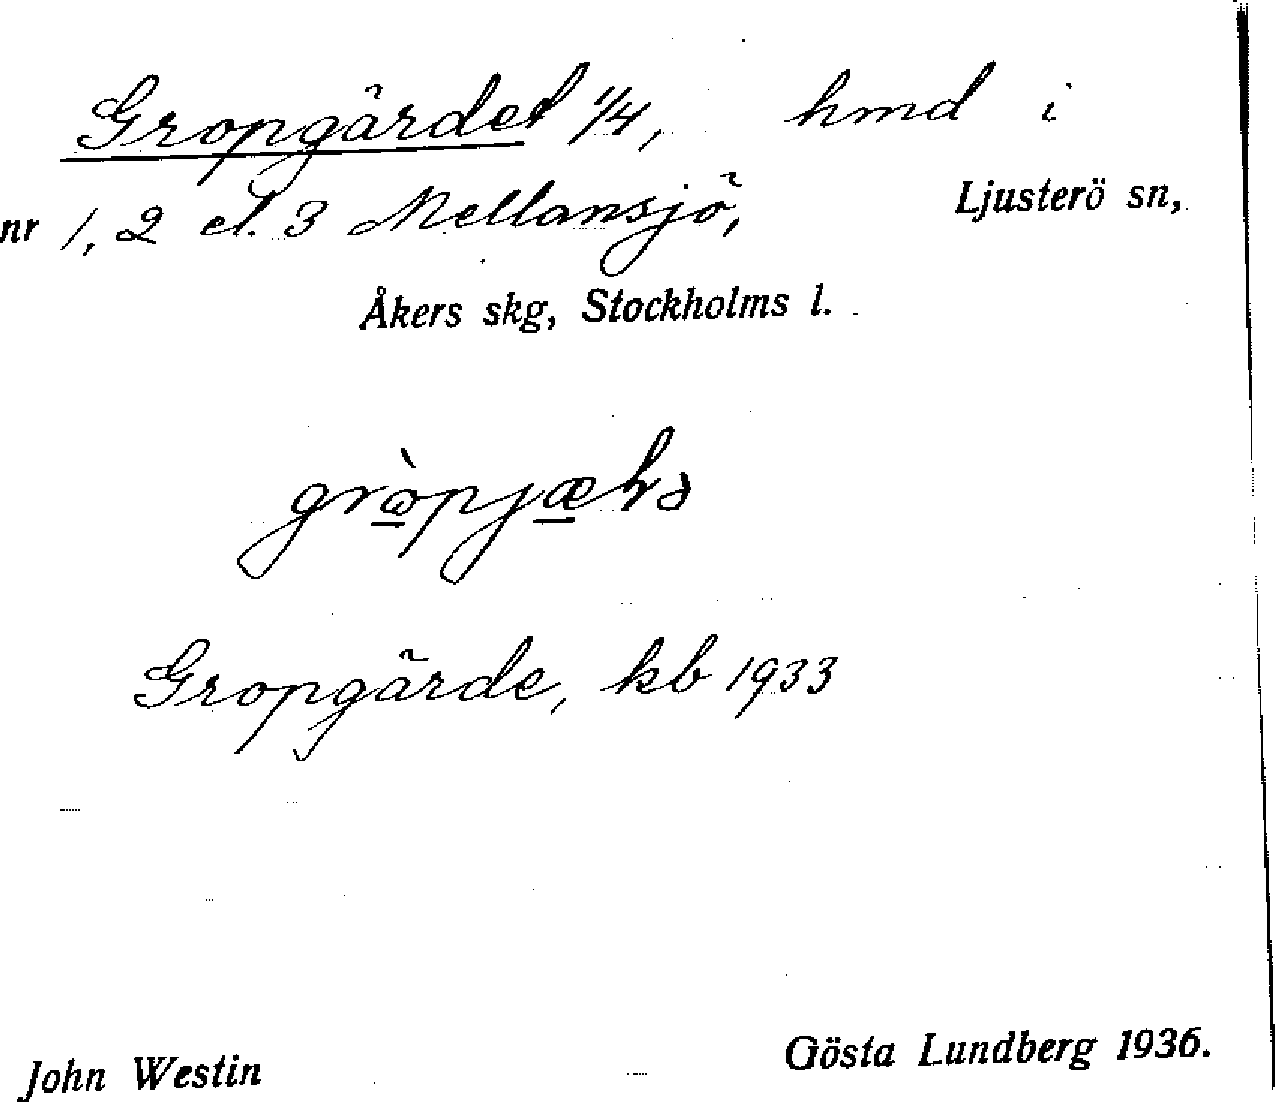 Gropgärdet 1/4, hmd i
nr 1, 2 el. 3 Mellansjö, Ljusterö sn,
Åkers skg, Stockholms l.
Gropgärde, kb 1933
John Westin Gösta Lundberg 1936.